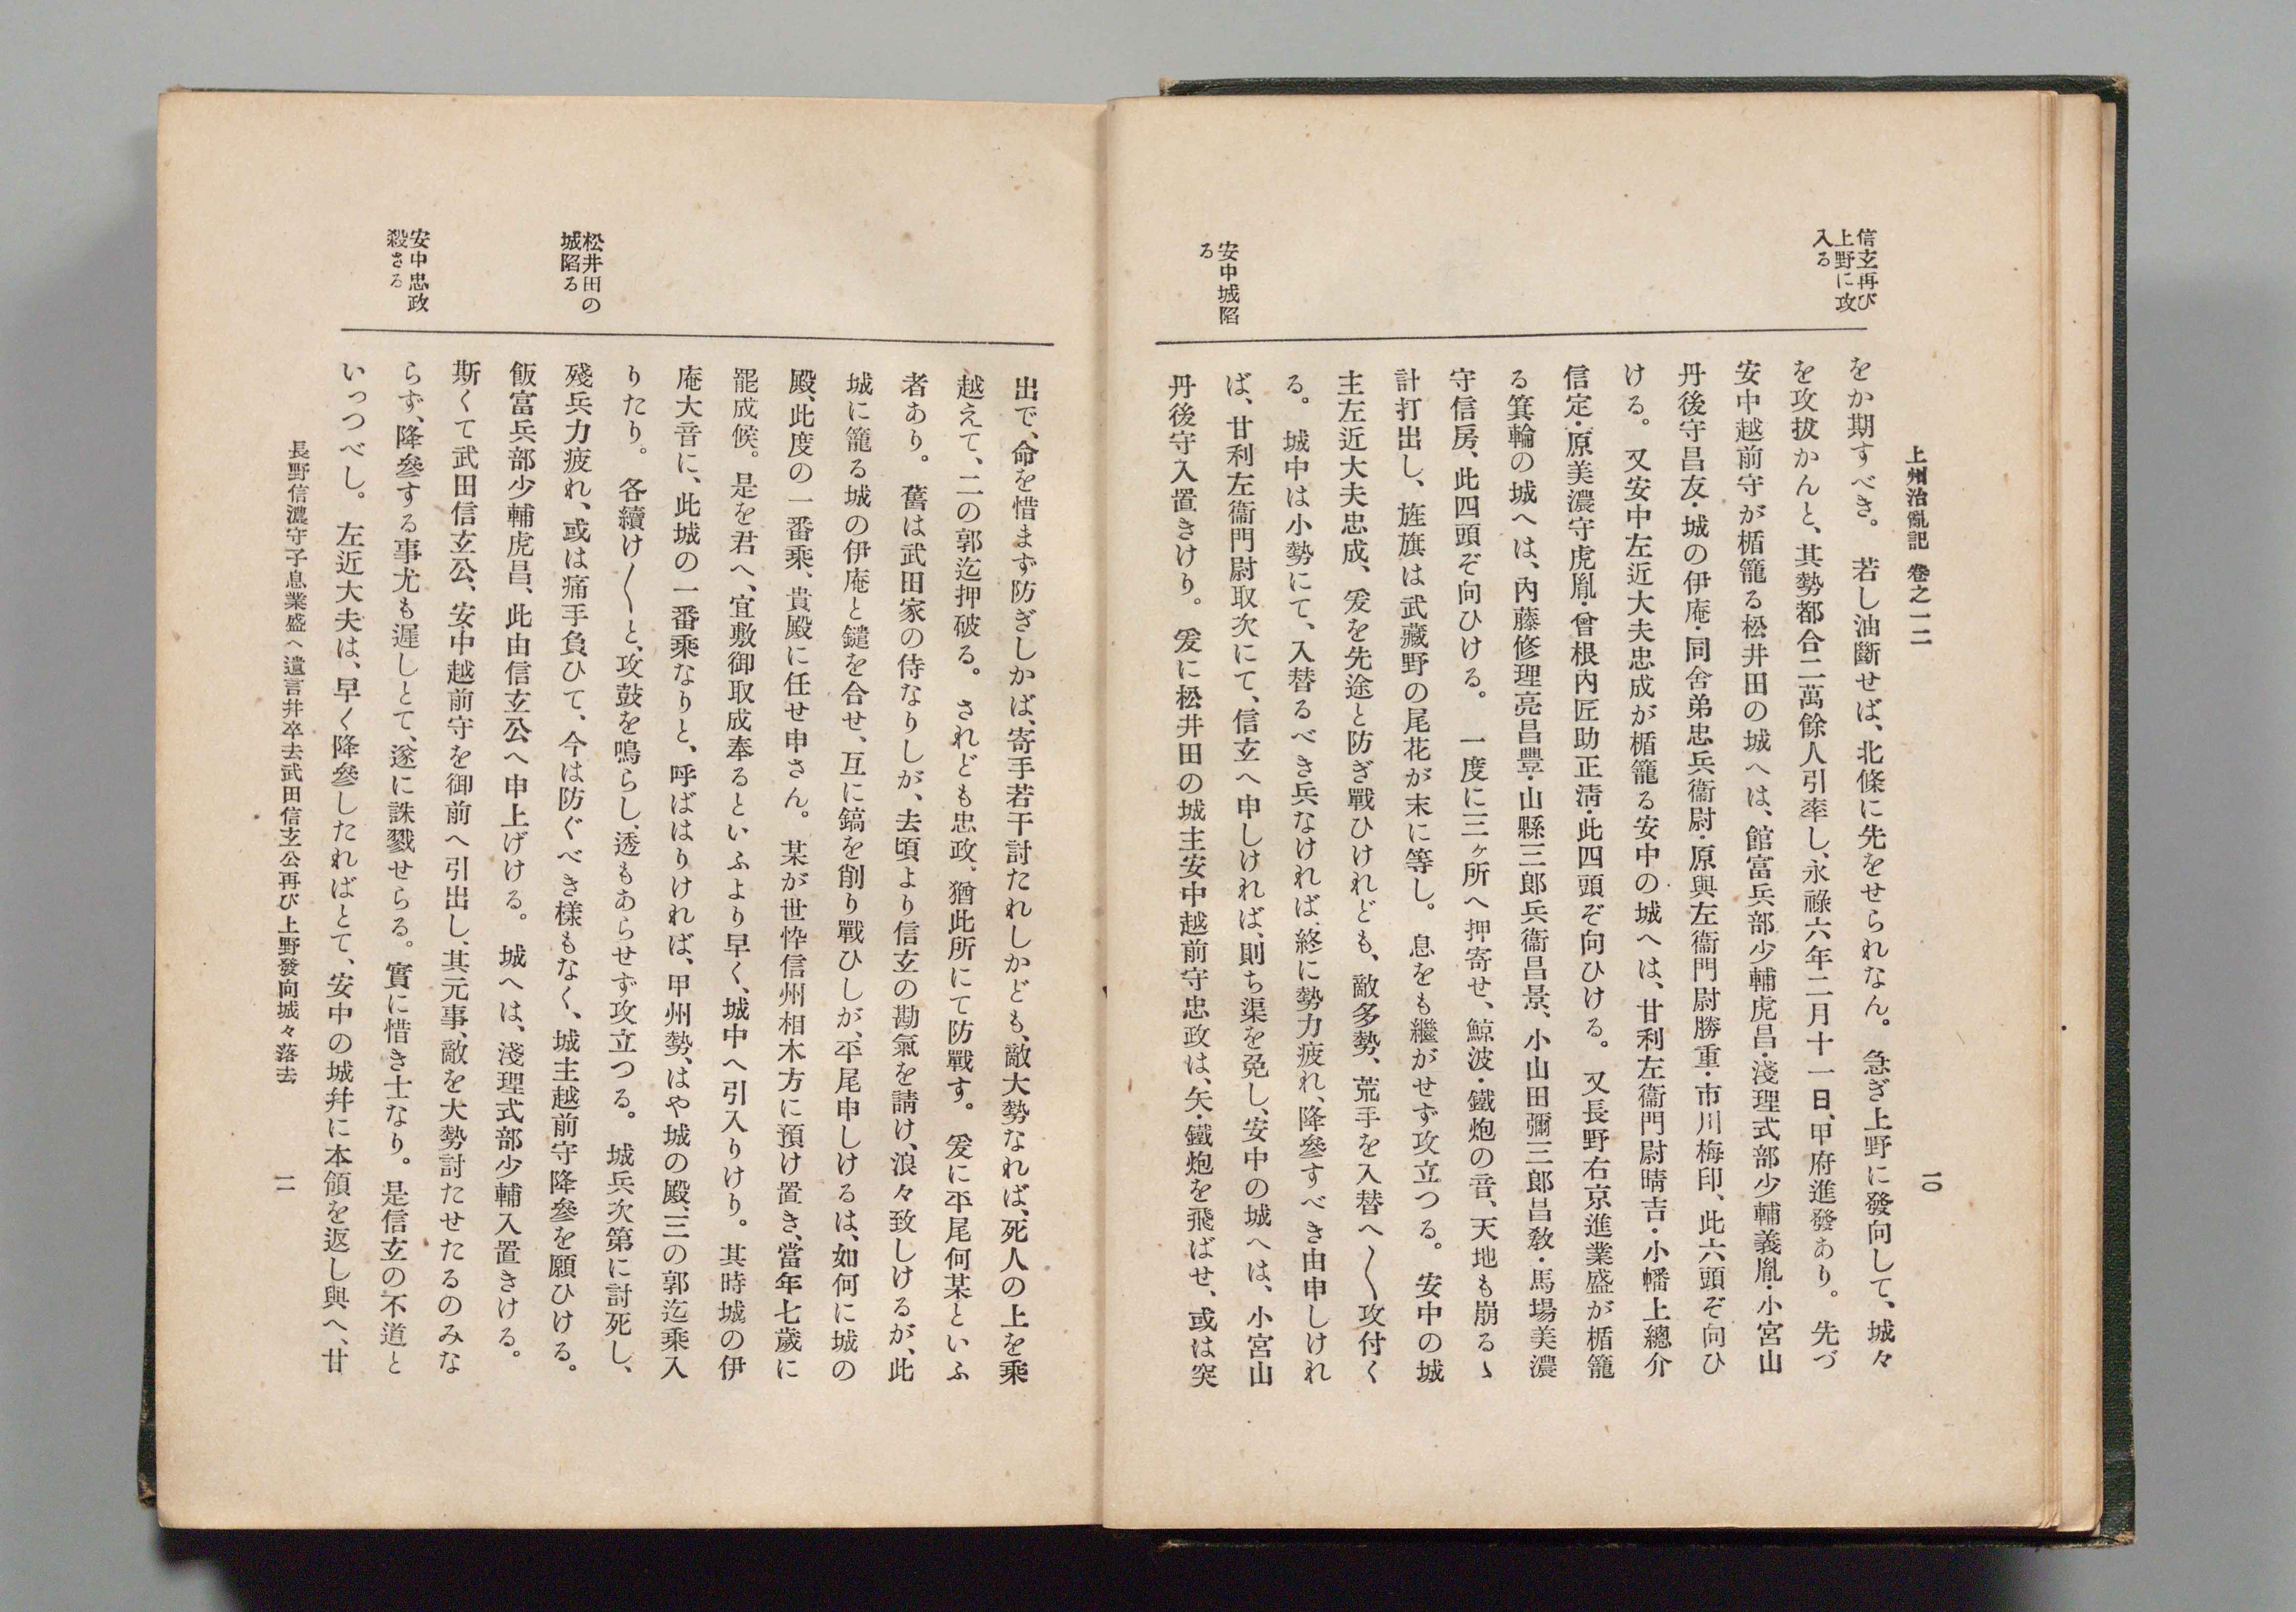 上州治亂記 卷之一二
一〇
信玄再び
上野に攻
入る
をか期すべき。若し油斷せば、北條に先をせられなん。急ぎ上野に發向して、城々
を攻拔かんと、其勢都合二萬餘人引率し、永祿六年二月十一日、甲府進發あり。先づ
安中越前守が楯籠る松井田の城へは、館富兵部少輔虎昌・淺理式部少輔義胤・小宮山
丹後守昌友・城の伊庵・同舍弟忠兵衞尉・原與左衞門尉勝重・市川梅印、此六頭ぞ向ひ
ける。又安中左近大夫忠成が楯籠る安中の城へは、甘利左衞門尉晴吉・小幡上總介
信定・原美濃守虎胤・曾根内匠助正淸・此四頭ぞ向ひける。又長野右京進業盛が楯籠
る箕輪の城へは、内藤修理亮昌豐・山縣三郎兵衞昌景、小山田彌三郎昌敎・馬場美濃
守信房、此四頭ぞ向ひける。一度に三ヶ所へ押寄せ、鯨波・鐵炮の音、天地も崩るゝ
計打出し、旌旗は武藏野の尾花が末に等し。息をも繼がせず攻立つる。安中の城
主左近大夫忠成、爰を先途と防ぎ戰ひけれども、敵多勢、荒手を入替へ〳〵攻付く
る。城中は小勢にて、入替るべき兵なければ、終に勢力疲れ、降參すべき由申しけれ
ば、甘利左衞門尉取次にて、信玄へ申しければ、則ち渠を免し、安中の城へは、小宮山
丹後守入置きけり。爰に松井田の城主安中越前守忠政は、矢・鐵炮を飛ばせ、或は突
安中城陷
る
出で、命を惜まず防ぎしかば、寄手若干討たれしかども、敵大勢なれば、死人の上を乘
越えて、二の郭迄押破る。されども忠政、猶此所にて防戰す。爰に平尾何某といふ
者あり。舊は武田家の侍なりしが、去頃より信玄の勘氣を請け、浪々致しけるが、此
城に籠る城の伊庵と鑓を合せ、互に鎬を削り戰ひしが、平尾申しけるは、如何に城の
殿、此度の一番乘、貴殿に任せ申さん。某が世忰信州相木方に預け置き、當年七歲に
罷成候。是を君へ、宜敷御取成奉るといふより早く、城中へ引入りけり。其時城の伊
庵大音に、此城の一番乘なりと、呼ばはりければ、甲州勢、はや城の殿、三の郭迄乘入
りたり。各續け〳〵と、攻鼓を鳴らし、透もあらせず攻立つる。城兵次第に討死し、
殘兵力疲れ、或は痛手負ひて、今は防ぐべき樣もなく、城主越前守降參を願ひける。
飯富兵部少輔虎昌、此由信玄公へ申上げける。城へは、淺理式部少輔入置きける。
斯くて武田信玄公、安中越前守を御前へ引出し、其元事、敵を大勢討たせたるのみな
らず、降參する事尤も遲しとて、遂に誅戮せらる。實に惜き士なり。是信玄の不道と
いっつべし。左近大夫は、早く降參したればとて、安中の城幷に本領を返し與へ、甘
松井田の
城陷る
安中忠政
殺さる
長野信濃守子息業盛へ遺言幷卒去武田信玄公再び上野發向城々落去
一一